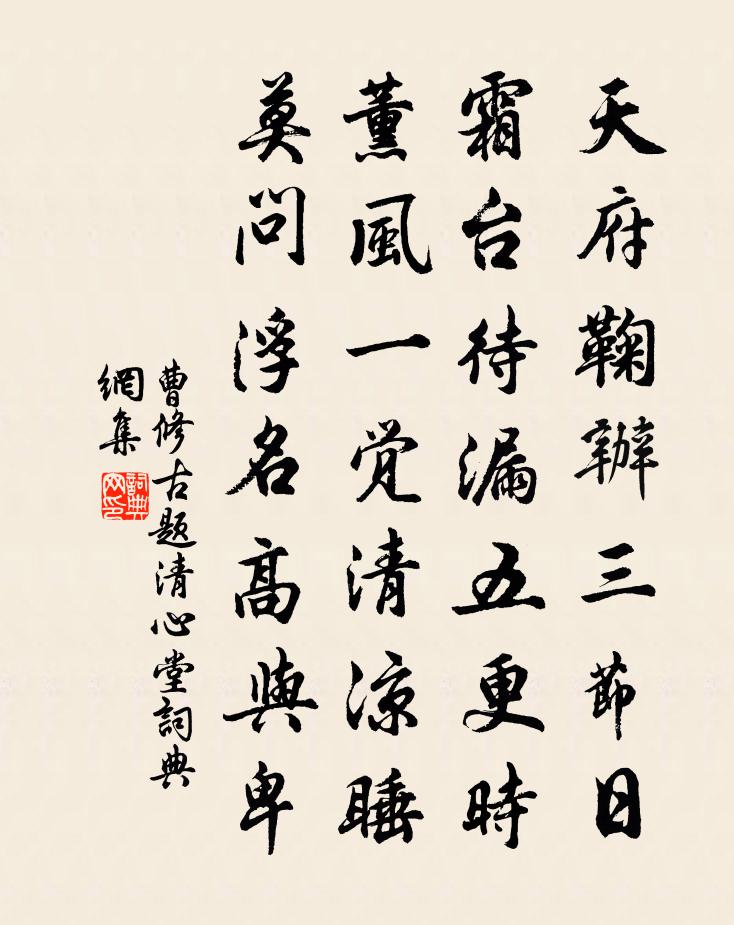 天府鞠辦三節日
霜台待漏五更時
薰風一覚清涼睡
莫問浮名高與卑
曹修古題清心堂詞典
網集
詞典网印